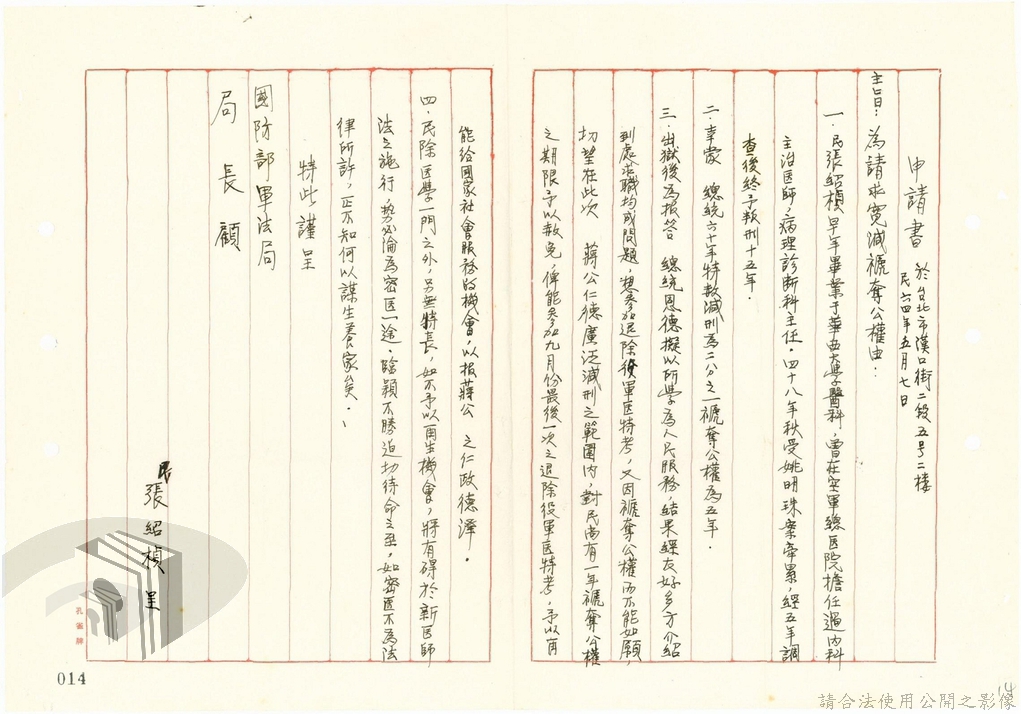 申請書 於台北市漢口街二段五号二楼
民六四年五月七日
主旨：為請求寬減褫奪公權由：
一．民張紹楨早年畢業于華西大學醫科，曾在空軍總医院擔任過内科
主治医師，病理診断科主任．四十八年秋受姚明珠案牽累，經五年調
查後終予叛刑十五年．
二．幸蒙 總統六十年特赦减刑為二分之一褫奪公權為五年．
三．出獄後為报答 總統恩德擬以所學為人民服務，結果經友好多方介紹
到處求職均成問題，想參加退除役軍医特考，又因褫奪公權而不能如願，
切望在此次 蔣公仁德廣泛减刑之範圍内，對民尚有一年褫奪公權
之期限予以赦免，俾能參加九月份最後一次之退除役軍医特考，予以再
能給國家社會服務的機會，以报蔣公 之仁政德澤．
四．民除医學一門之外，另無特長，如不予以再生機會，將有碍於新医師
法之施行，勢必淪為密医一途．臨穎不勝迫切待命之至，如密医不為法
律所許，正不知何以謀生養家矣．
特此謹呈
國防部軍法局
局長 顧
民 張紹楨 呈
孔雀牌
014
14
請合法使用公開之影像